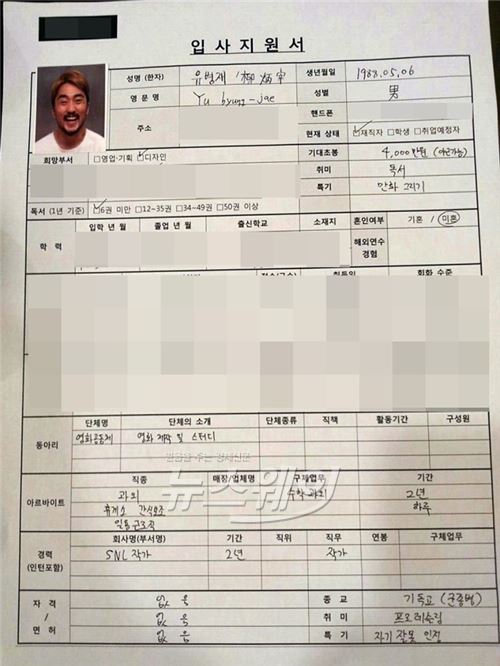 입사지원서
성명 (한자) 유병재 생년월일 1988.05.06
영문명 Yu byung-jae 성별 男
주소 핸드폰
현재 상태 ☑재직자 □학생 □취업예정자
희망부서 □영업·기획 ☑디자인 기대초봉 4,000만원
취미 독서
특기 만화 그리기
독서 (1년 기준) ☑6권 미만 □12~35권 □34~49권 □50권 이상
학력 입학 년 월 졸업 년 월 출신학교 소재지 혼인여부 기혼 / 미혼
해외연수 경험
회화 수준
동아리 단체명 단체의 소개 단체종류 직책 활동기간 구성원
영화공동체 영화 제작 및 스터디
믿음을 주는 경제신문
뉴스웨이
아르바이트 직종 매장/업체명 구체업무 기간
과외 수학 과외 2년
휴게소 간식보조 하루
일용근로직
경력 (인턴포함) 회사명(부서명) 기간 직위 직무 연봉 구체업무
SNL 작가 2년 작가
자격 / 면허 없음 종교 기독교 (군종병)
없음 취미 프로레슬링
없음 특기 자기 잘못 인정